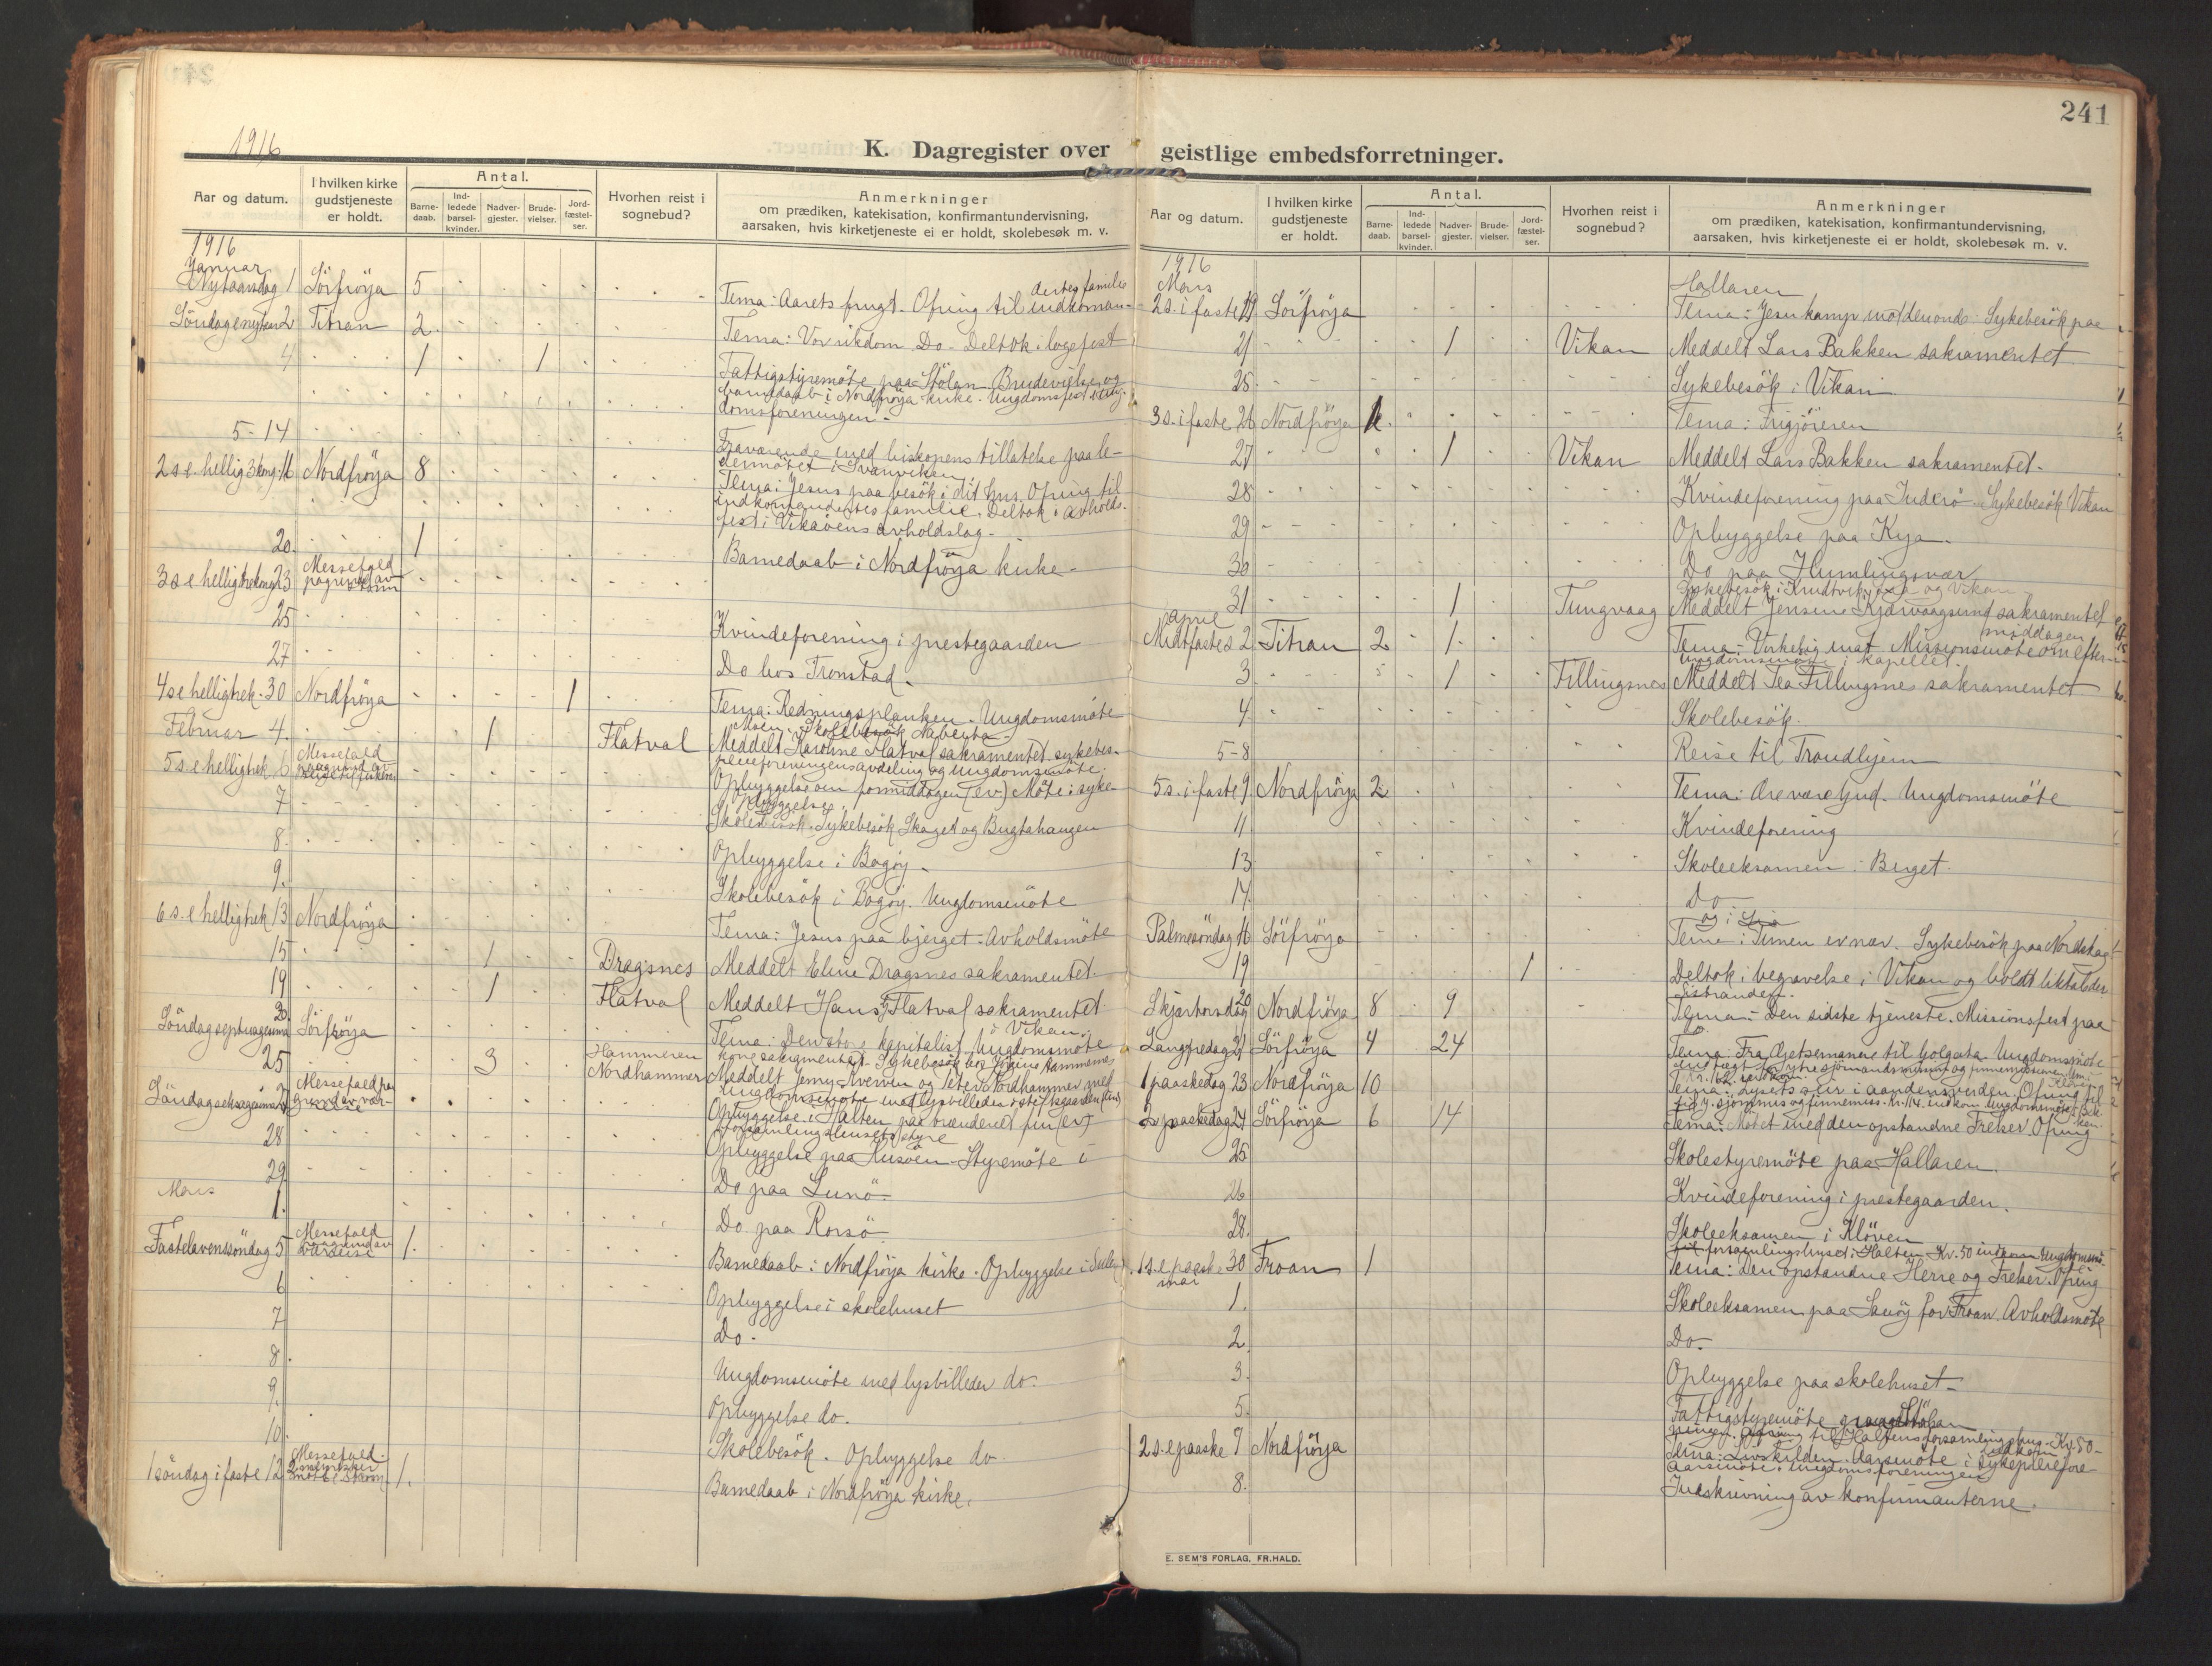 241
1916
K. Dagregister over geistlige embedsforretninger.
Aar og datum.
I hvilken kirke gudstjeneste er holdt.
Antal.
Barne-daab.
Ind-ledede barsel-kvinder.
Nadver-gjester.
Brude-vielser.
Jord-fæstel-ser.
Hvorhen reist i sognebud?
Anmerkninger
om prædiken, katekisation, konfirmantundervisning,
aarsaken, hvis kirketjeneste ei er holdt, skolebesøk m. v.
1916
Januar
Nytaarsdag 1 Sörfröya 5
dertes familie
Tema: Aarets frugt. Ofring til indkoman-
Söndag e nytaar 2 Titran 2
Tema: Vor rikdom Do - Deltok i logefest
4 1 1
Fattigstyremöte paa Stölan. Brudevielse og
barnedaab i Nordfröya kirke. Ungdomsfest i ung-
domsforeningen -
5-14
Fraværende med biskopens tillatelse paa le-
dermötet i Svanviken
2 s. e. hellig 3 kong. 16 Nordfröya 8
Tema: Jesus paa besök i dit hus. Ofring til
indkomandertes familie. Deltok i avholds-
fest i Vikaöens avholdslag -
20. 1
Barnedaab i Nordfröya kirke -
3 s e helligtrekong. 23 Messefald paagrund av storm
25
Kvindeforening i prestegaarden
27
Do hos Tronstad.
4 s e helligtrek. 30 Nordfröya 1
Tema: Redningsplanken. Ungdomsmöte
Februar 4. 1 Flatval
Meddelt Karoline Flatval sakramentet sykebes.
pleieforeningens avdeling og ungdomsmöte.
5 s. e helligtrek. 6 Messefald
Opbyggelse om formiddagen (ev) Möte i syke-
7
Opbyggelse
Skolebesök. Sykebesök Skaget og Bugtahaugen
8.
Opbyggelse i Bogöy.
9.
Skolebesök i Bogöy. Ungdomsmöte
6 s. e helligtrek 13 Nordfröya
Tema: Jesus paa bjerget. Avholdsmöte
15 1 Dragsnes
Meddelt Eline Dragsnes sakramentet.
19 1 Flatval
Meddelt Hans Flatval sakramentet
Söndag septuagesima 20 Sörfröya
i Vikan.
Tema: Den store kapitalist. Ungdomsmöte
25 3 Hammeren Nordhammer
kone sakramentet. Sykebesök hos Jörgine Hammernes
Meddelt Jenny Iversen og Peter Nordhammer med
Söndag seksagesima 27 Messefald paa grund av vær-
Opbyggelse i Halten paa brænderiet fin (ev)
28
forsamlingshusets styre
Opbyggelse paa Husöen. Styremöte i
29
Do paa Sunö.
Mars
1.
Do paa Rorsö
Fastelavenssöndag 5 Messefald paagrund av 1.
Barnedaab i Nordfröya kirke. Opbyggelse i
6
Opbyggelse i skolehuset
7
Do.
8.
Ungdomsmöte med lysbilleder do.
9.
Opbyggelse do.
10.
Skolebesök. Opbyggelse do
1 söndag i faste 12 Messefald 2 mennesker möttte 1.
Barnedaab i Nordfröya kirke.
Aar og datum.
I hvilken kirke gudstjeneste er holdt.
Antal.
Barne-daab.
Ind-ledede barsel-kvinder.
Nadver-gjester.
Brude-vielser.
Jord-fæstel-ser.
Hvorhen reist i sognebud?
Anmerkninger
om prædiken, katekisation, konfirmantundervisning,
aarsaken, hvis kirketjeneste ei er holdt, skolebesøk m. v.
1916
Mars
Hallaren
2 s. i faste 19 Sörfröya
Tema: Jesu kamp mot de onde. Sykebesök paa
21 1 Vikan
Meddelt Lars Bakken sakramentet
25
Sykebesök i Vikan
3 s. i faste 26 Nordfröya
Tema: Frigjöreren
27 1 Vikan
Meddelt Lars Bakken sakramentet.
28
Kvindeforening paa Inderö. Sykebesök Vikan
29
Opbyggelse paa Kya.
30
Do paa Humlingsvær
31 1 Tungvaag
Meddelt Jensine Kjærvaagsund sakramentet
April
middagen
Midtfastes 2 Titran 2 1
Tema: Virkelig mat. Missionsmöte om efter-
ungdomsmöte i kapellet.
3 1 Fillingsnes
Meddelt Tea Fillingsnes sakramentet
4
Skolebesök.
5-8
Reise til Trondhjem
5 s. i faste 9. Nordfröya 2
Tema: Ære være Gud. Ungdomsmöte
11
Kvindeforening
13
Skoleeksamen i Berget.
14
Do
Palmesöndag 16 Sörfröya
Tema: Timen er nær. Sykebesök paa Nordskag
19 1
Deltok i begravelse i Vikan og holdt liktale der
Skjærtorsdag 20 Nordfröya 8 9
Tema: Den sidste tjeneste. Missionsfest paa
Langfredag 21 Sörfröya 4 24
Tema: Fra Getsemane til Golgata. Ungdomsmöte
1 paaskedag 23 Nordfröya 10
Tema: Lysets seier i aandens verden. Ofring til
2 paaskedag 24 Sörfröya 6 14
Tema: Mötet med den opstandne Frelser. Ofring
25
Skolestyremöte paa Hallaren.
26
Kvindeforening i prestegaarden.
28.
Skoleeksamen i Klöven
til forsamlingshuset i Halten Kr. 50 indkom. Ungdomsmö-
1 s. e paaske 30 Froan 1
Tema: Den opstandne Herre og Frelser. Ofring
mai
1.
Skoleeksamen paa Sauöy for Froan. Avholdsmöte
2.
Do.
3.
Opbyggelse paa skolehuset
5.
Fattigstyremöte paa Stölan
ningen. Ofring til Haltens forsamlingshus - Kr. 50 -
indkom
2 s. e paaske 7 Nordfröya
Tema: Livskilden. Aarsmöte i sykepleiefore-
Aarsmöte i ungdomsforeningen
8.
Indskrivning av konfirmanterne.
E. SEM'S FORLAG, FR.HALD.